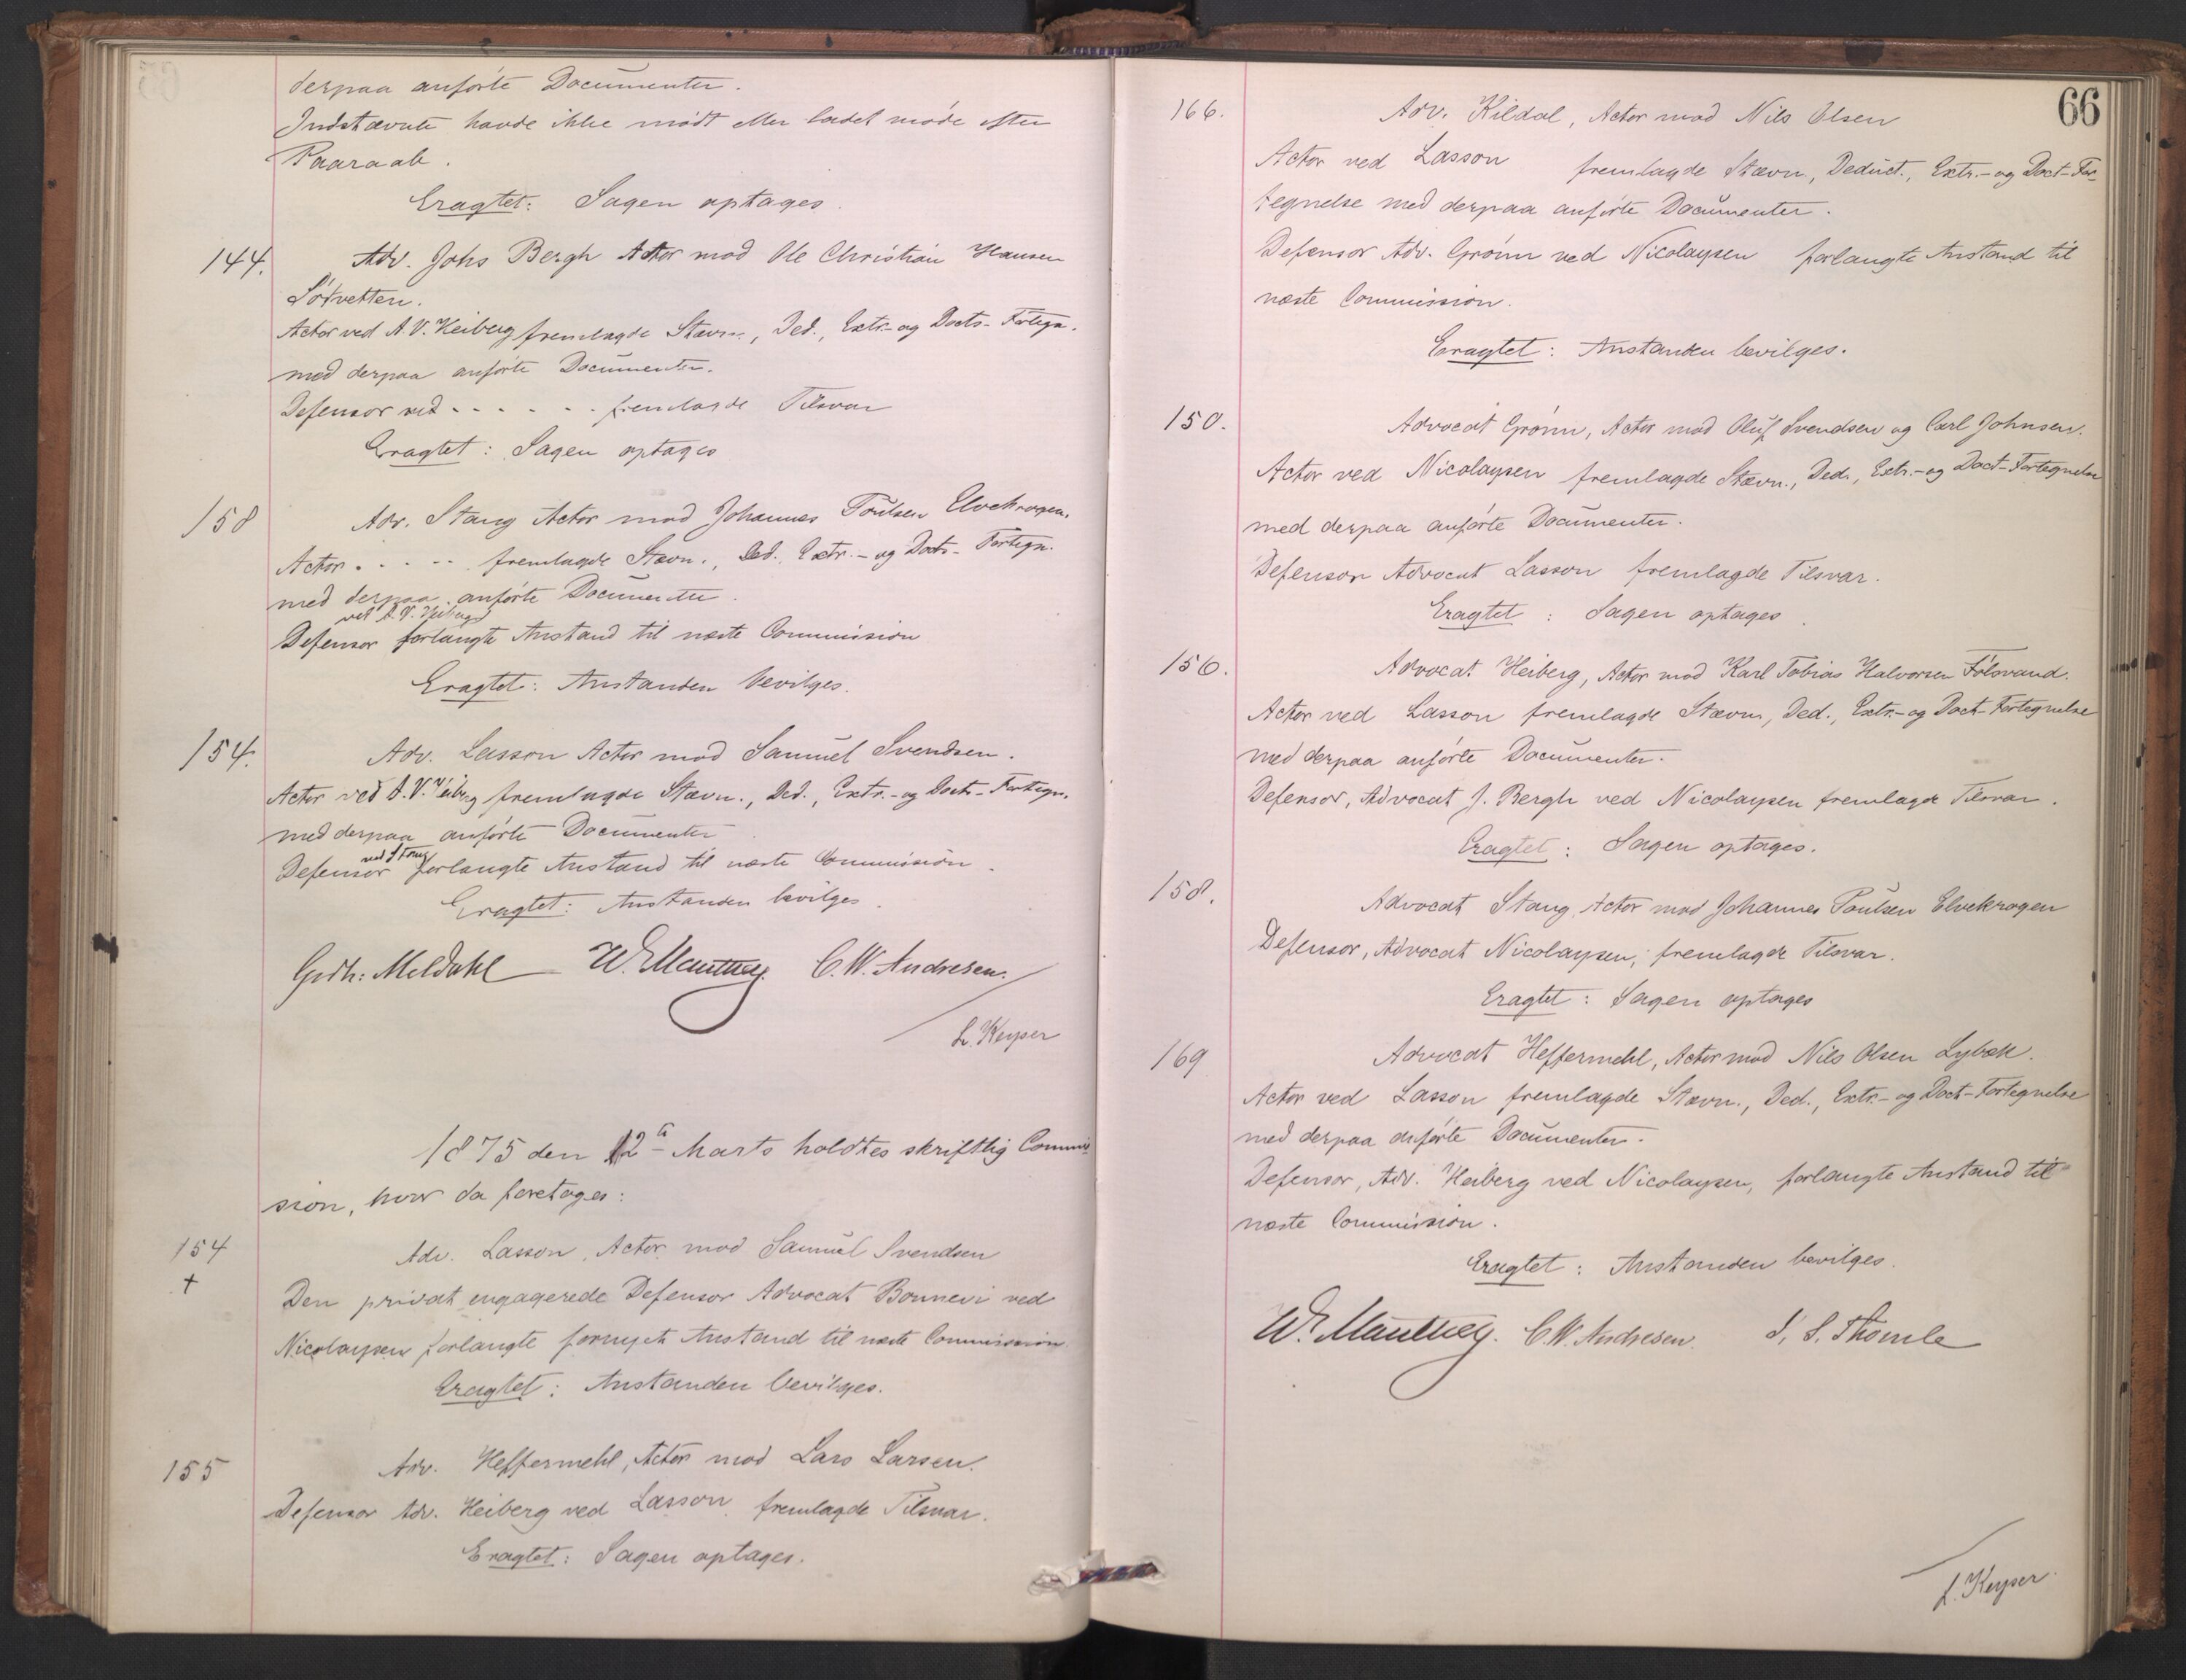 derpaa anførte Documenter.
Indstævnte havde ikke mødt eller ladet møde efter
Paaraab.
Eragtet: Sagen optages.
144. Adv. Johs Bergh Actor mod Ole Christian Hansen
Sötvetten.
Actor ved A. V. Heiberg fremlagde Stævn., Ded., Extr.- og Docts-Fortegn.
med derpaa anførte Documenter.
Defensor ved - - - - - - fremlagde Tilsvar
Eragtet: Sagen optages
158 Adv. Stang Actor mod Johannes Poulsen Elvekragen.
Actor - - - - - fremlagde Stævn., Ded. Extr.- og Docts-Fortegn.
med derpaa anførte Documenter.
ved A. V. Heiberg
Defensor forlangte Anstand til næste Commission
Eragtet: Anstanden bevilges.
154. Adv. Lasson Actor mod Samuel Svendsen.
Actor ved A. V. Heiberg fremlagde Stævn., Ded., Extr.- og Docts-Fortegn.
med derpaa anførte Documenter
ved Stang
Defensor forlangte Anstand til næste Commission.
Eragtet: Anstanden bevilges.
Meldahl W. C. W. Andresen.
L. Keyser
1875 den 12te Marts holdtes skriftlig Commis-
sion, hvor da foretages:
154 Adv. Lasson, Actor mod Samuel Svendsen
+
Den privat engagerede Defensor Advocat Bonnevi ved
Nicolaysen forlangte fornyet Anstand til næste Commission.
Eragtet: Anstanden bevilges.
155 Adv. Heffermehl, Actor mod Lars Larsen.
Defensor Adv. Heiberg ved Lasson fremlagde Tilsvar.
Eragtet: Sagen optages.
66
166. Adv. Kildal, Actor mod Nils Olsen
Actor ved Lasson fremlagde Stævn., Deduct., Extr.- og Doct-For-
tegnelse med derpaa anførte Documenter.
Defensor Adv. Grönn ved Nicolaysen forlangte Anstand til
næste Commission.
Eragtet: Anstanden bevilges.
150. Advocat Grönn, Actor mod Oluf Svendsen og Carl Johnsen.
Actor ved Nicolaysen fremlagde Stævn., Ded., Extr.- og Doct-Fortegnelse
med derpaa anførte Documenter.
Defensor Advocat Lasson fremlagde Tilsvar.
Eragtet: Sagen optages.
156. Advocat Heiberg, Actor mod Karl Tobias Halvorsen Fölsvand.
Actor ved Lasson fremlagde Stævn., Ded., Extr.- og Doct-Fortegnelse
med derpaa anførte Documenter.
Defensor, Advocat J. Bergh ved Nicolaysen fremlagde Tilsvar.
Eragtet: Sagen optages.
158. Advocat Stang Actor mod Johannes Poulsen Elvekragen
Defensor, Advocat Nicolaysen, fremlagde Tilsvar.
Eragtet: Sagen optages
169 Advocat Heffermehl, Actor mod Nils Olsen Lybæk.
Actor ved Lasson fremlagde Stævn., Ded., Extr.- og Doct-Fortegnelse
med derpaa anførte Documenter.
Defensor, Adv. Heiberg ved Nicolaysen, forlangte Anstand til
næste Commission.
Eragtet: Anstanden bevilges.
W. C. W. Andresen. S. S. Thomle
L. Keyser.